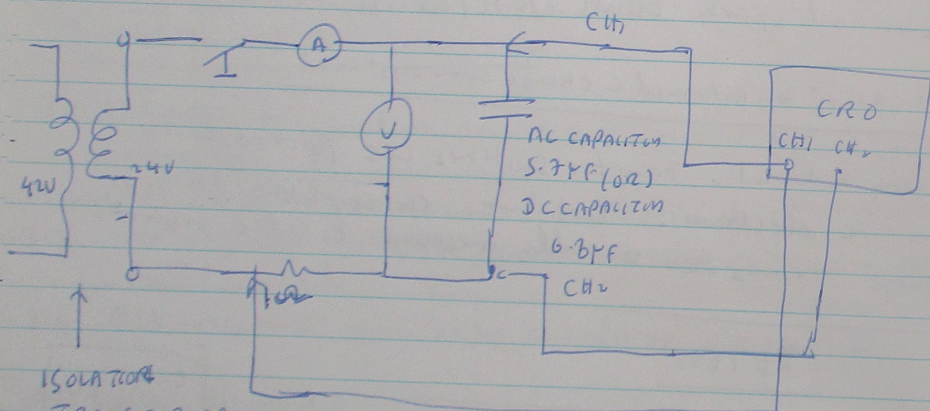 CH1
A
CRO
CH1 CH2
V
AC CAPACITOR
5.7µF (OR)
DC CAPACITOR
6.8µF
42V
24V
CH2
10Ω
ISOLATION